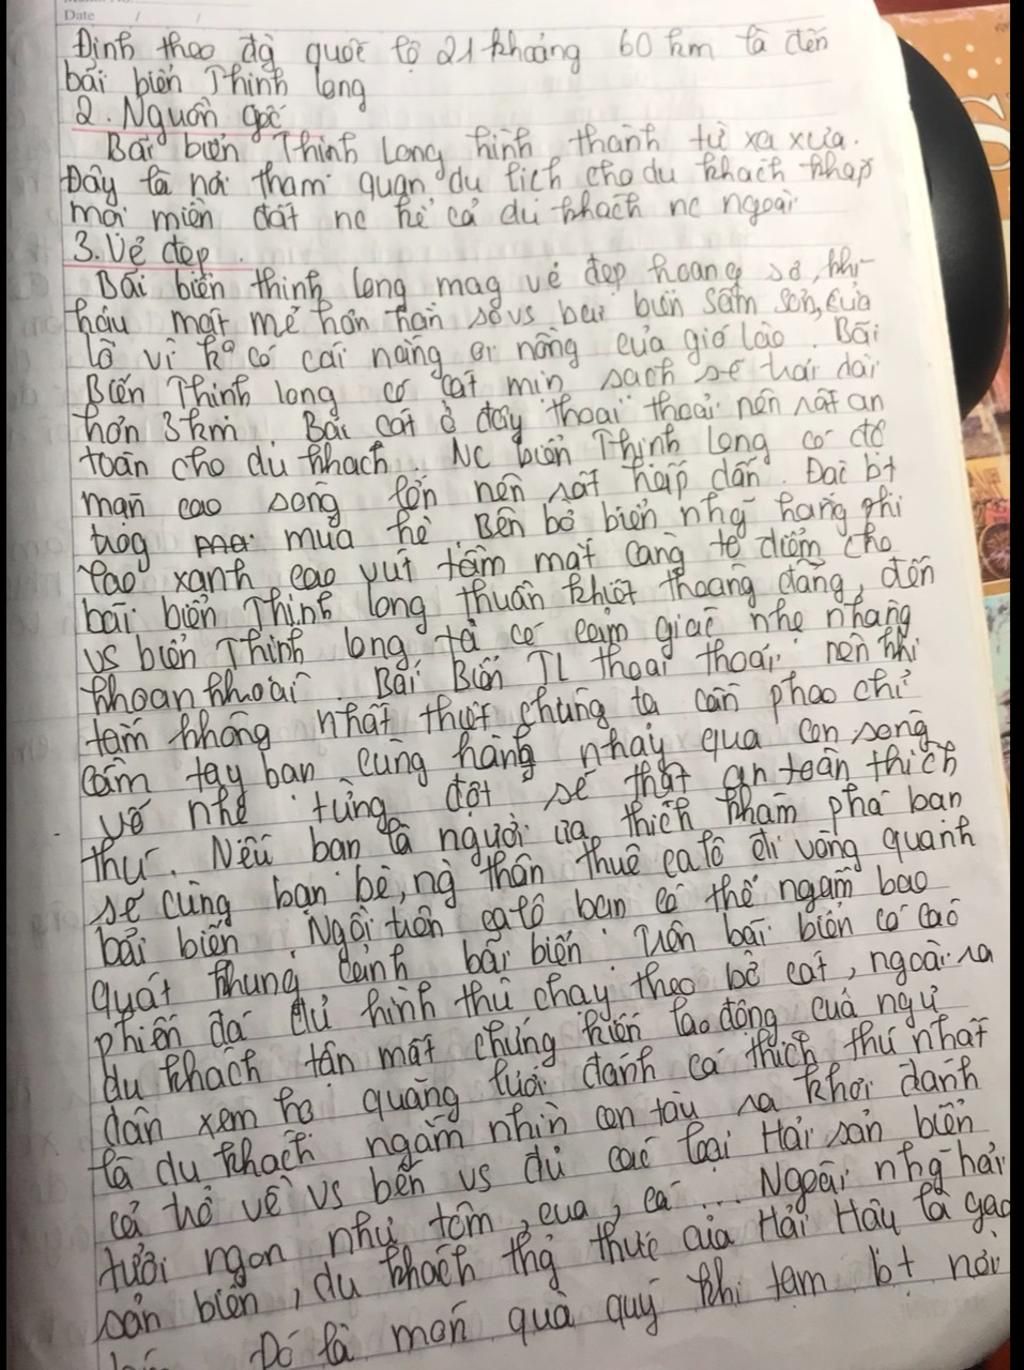 Date / /
Định theo đg quốc lộ 21 khoảng 60 km là đến
bãi biển Thịnh long
2. Nguồn gốc
Bãi biển Thịnh Long hình thành từ xa xưa.
Đây là nơi tham quan du lịch cho du khách khắp
mọi miền đất nc kể cả du khách nc ngoài
3. Vẻ đẹp.
Bãi biển thịnh long mag vẻ đẹp hoang sơ, khí
hậu mát mẻ hơn hẳn so vs bãi biển Sầm Sơn, Cửa
lò vì ko có cái nắng oi nồng của gió lào. Bãi
Biển Thịnh long có cát mịn sạch sẽ trải dài
hơn 3km. Bãi cát ở đây thoai thoải nên rất an
toàn cho du khách. Nc biển Thịnh Long có độ
mặn cao sóng lớn nên rất hấp dẫn. Đặc bt
trog mùa hè. Bên bờ biển nhg hàng phi
lao xanh cao vút tầm mắt càng tô điểm cho
bãi biển Thịnh long thuần khiết thoáng đãng, đến
vs biển Thịnh long ta có cảm giác nhẹ nhàng
khoan khoái. Bãi Biển TL thoai thoải nên khi
tắm không nhất thiết chúng ta cần phao chỉ
cầm tay bạn cùng hàng nhảy qua con sóng
vỗ nhẹ từng đợt sẽ thật an toàn thích
thú. Nếu bạn là người ưa thích khám phá bạn
sẽ cùng bạn bè, ng thân thuê ca lô đi vòng quanh
bãi biển. Ngồi trên ca lô bạn có thể ngắm bao
quát khung cảnh bãi biển. Trên bãi biển có các
phiến đá đủ hình thù chạy theo bờ cát, ngoài ra
du khách tận mắt chứng kiến lao động của ngư
dân xem họ quăng lưới đánh cá thích thú nhất
là du khách ngắm nhìn con tàu ra khơi đánh
cá trở về vs bến vs đủ các loại Hải sản biển
tươi ngon như tôm, cua, cá... Ngoài nhg hải
sản biển, du khách thg thức của Hải Hậu là gạo
Đó là món quà quý khi tạm bt nơi